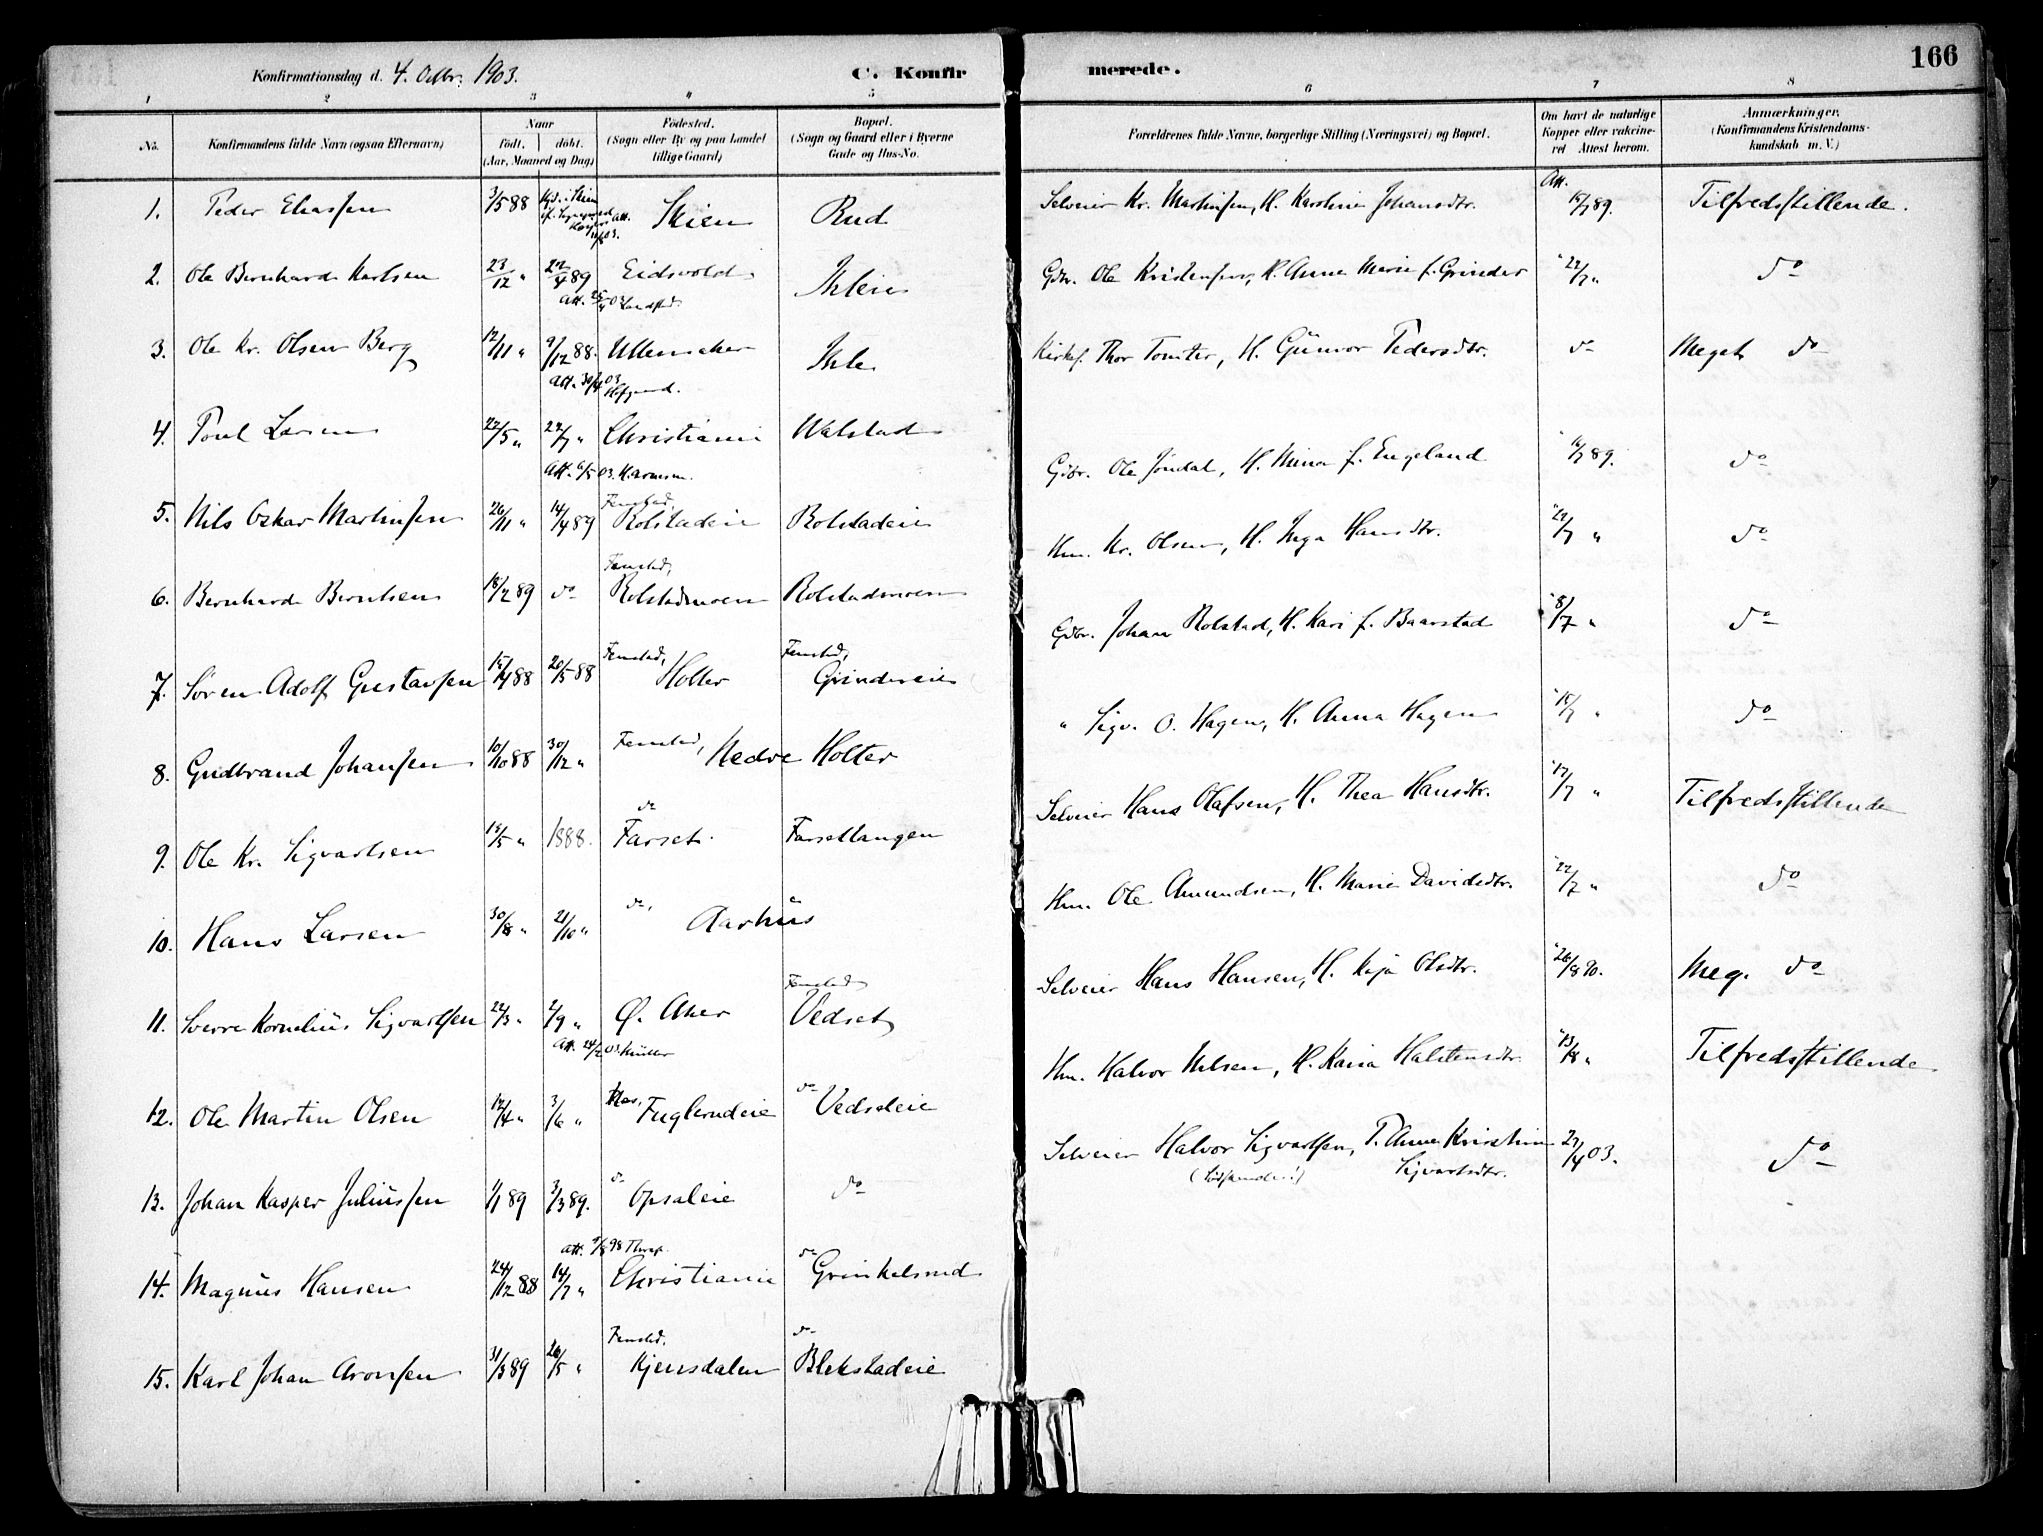 Konfirmationsdag d. 4. Octbr. 1903.
C. Konfirmerede.
166
1 2 3 4 5 6 7 8
No.
Konfirmandens fulde Navn (ogsaa Efternavn)
Naar
födt. döbt.
(Aar, Maaned og Dag)
Födested.
(Sogn eller By og paa Landet
tillige Gaard)
Bopæl.
(Sogn og Gaard eller i Byerne
Gade og Hus-No.
Forældrenes fulde Navne, borgerlige Stilling (Næringsvei) og Bopæl.
Om havt de naturlige
Kopper eller vakcine-
ret Attest herom.
Anmærkninger.
(Konfirmandens Kristendoms-
kundskab m. V.)
1. Peder Eliassen 3/5 88 Skien Rud
2. Ole Bernhard Karlsen 23/12 " 22/4 89 Eidsvold Ihleie
3. Ole Kr. Olsen Berg 12/11 " 9/12 88. Ullensaker Ihle
Att. 30/4 03
4. Poul Larsen 22/5 " 22/7 " Christiania Walstad
Att. 6/5 03
5. Nils Oskar Martinsen 26/11 " 14/4 89 Fenstad Rolstadeie Rolstadeie
6. Bernhard Berntsen 18/2 89 do Fenstad, Rolstadmoen Rolstadmoen
7. Søren Adolf Gustavsen 15/4 88 20/5 88 Fenstad, Holter Fenstad, Grindereie
8. Gudbrand Johansen 10/10 88 30/12 " Fenstad, Nedre Holter
9. Ole Kr. Sigvartsen 15/5 " 1888. do Farset. Farsettangen
10. Hans Larsen 30/8 " 21/10 " do, Aarhus
11. Sverre Kornelius Sigvartsen 22/3 " 2/9 " Ø. Aker Fenstad Vedset
Att. 24/2 03 Müller
12. Ole Martin Olsen 12/4 " 3/6 " Nes, Fuglerudeie do Vedseteie
13. Johan Kasper Juliussen 1/1 89 3/3 89. do Opsaleie do
Att. 9/8 98
14. Magnus Hansen 24/12 88 14/7 " Christiania do Grinkelsrud
15. Karl Johan Aronsen 31/3 89 26/5 " Fenstad. Kjensdalen do Blekstadeie
Selveier Kr. Martinsen, H. Karoline Johansdtr. Att. 15/7 89. Tilfredsstillende.
Gdbr. Ole Kristensen, H. Anne Marie f. Grinder " 22/7 " do
Kirkes. Thor Tomter, H. Gunvor Pedersdtr. do Meget do
Gdbr. Ole Jöndal, H. Mina f. Engeland " 16/7 89. do
Hm. Kr. Olsen, H. Inga Hansdtr. " 22/7 " do
Gdbr. Johan Rolstad, H. Kari f. Baarstad " 8/7 " do
" Sigv. O. Hagen, H. Anna Hagen " 15/7 " do
Selveier Hans Olafsen, H. Thea Hansdtr. " 17/7 " Tilfredsstillende
Hm. Ole Amundsen, H. Marie Davidsdtr. " 22/7 " do
Selveier Hans Hansen, H. Kaja Olsdtr. " 26/8 90. Meg. do
Hm. Halvor Nilsen, H. Karia Halstensdtr. " 13/8 " Tilfredsstillende
Selveier Halvor Sigvartsen, P. Anne Kristine 27/4 03. do
Sigvartsdtr.